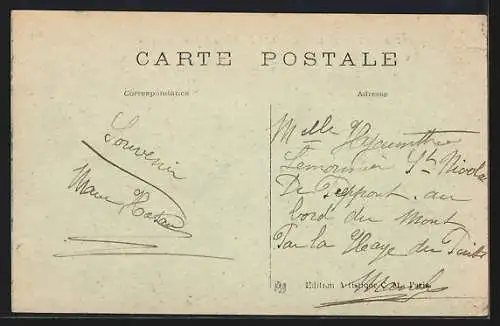 CARTE POSTALE
Correspondance
Adresse
Souvenir
Melle Hyacinthe
Lemonnier St Nicolas
De Pierrepont au
bord du Mont
Par la Haye du Puits
Manche
Edition Artistique Paris